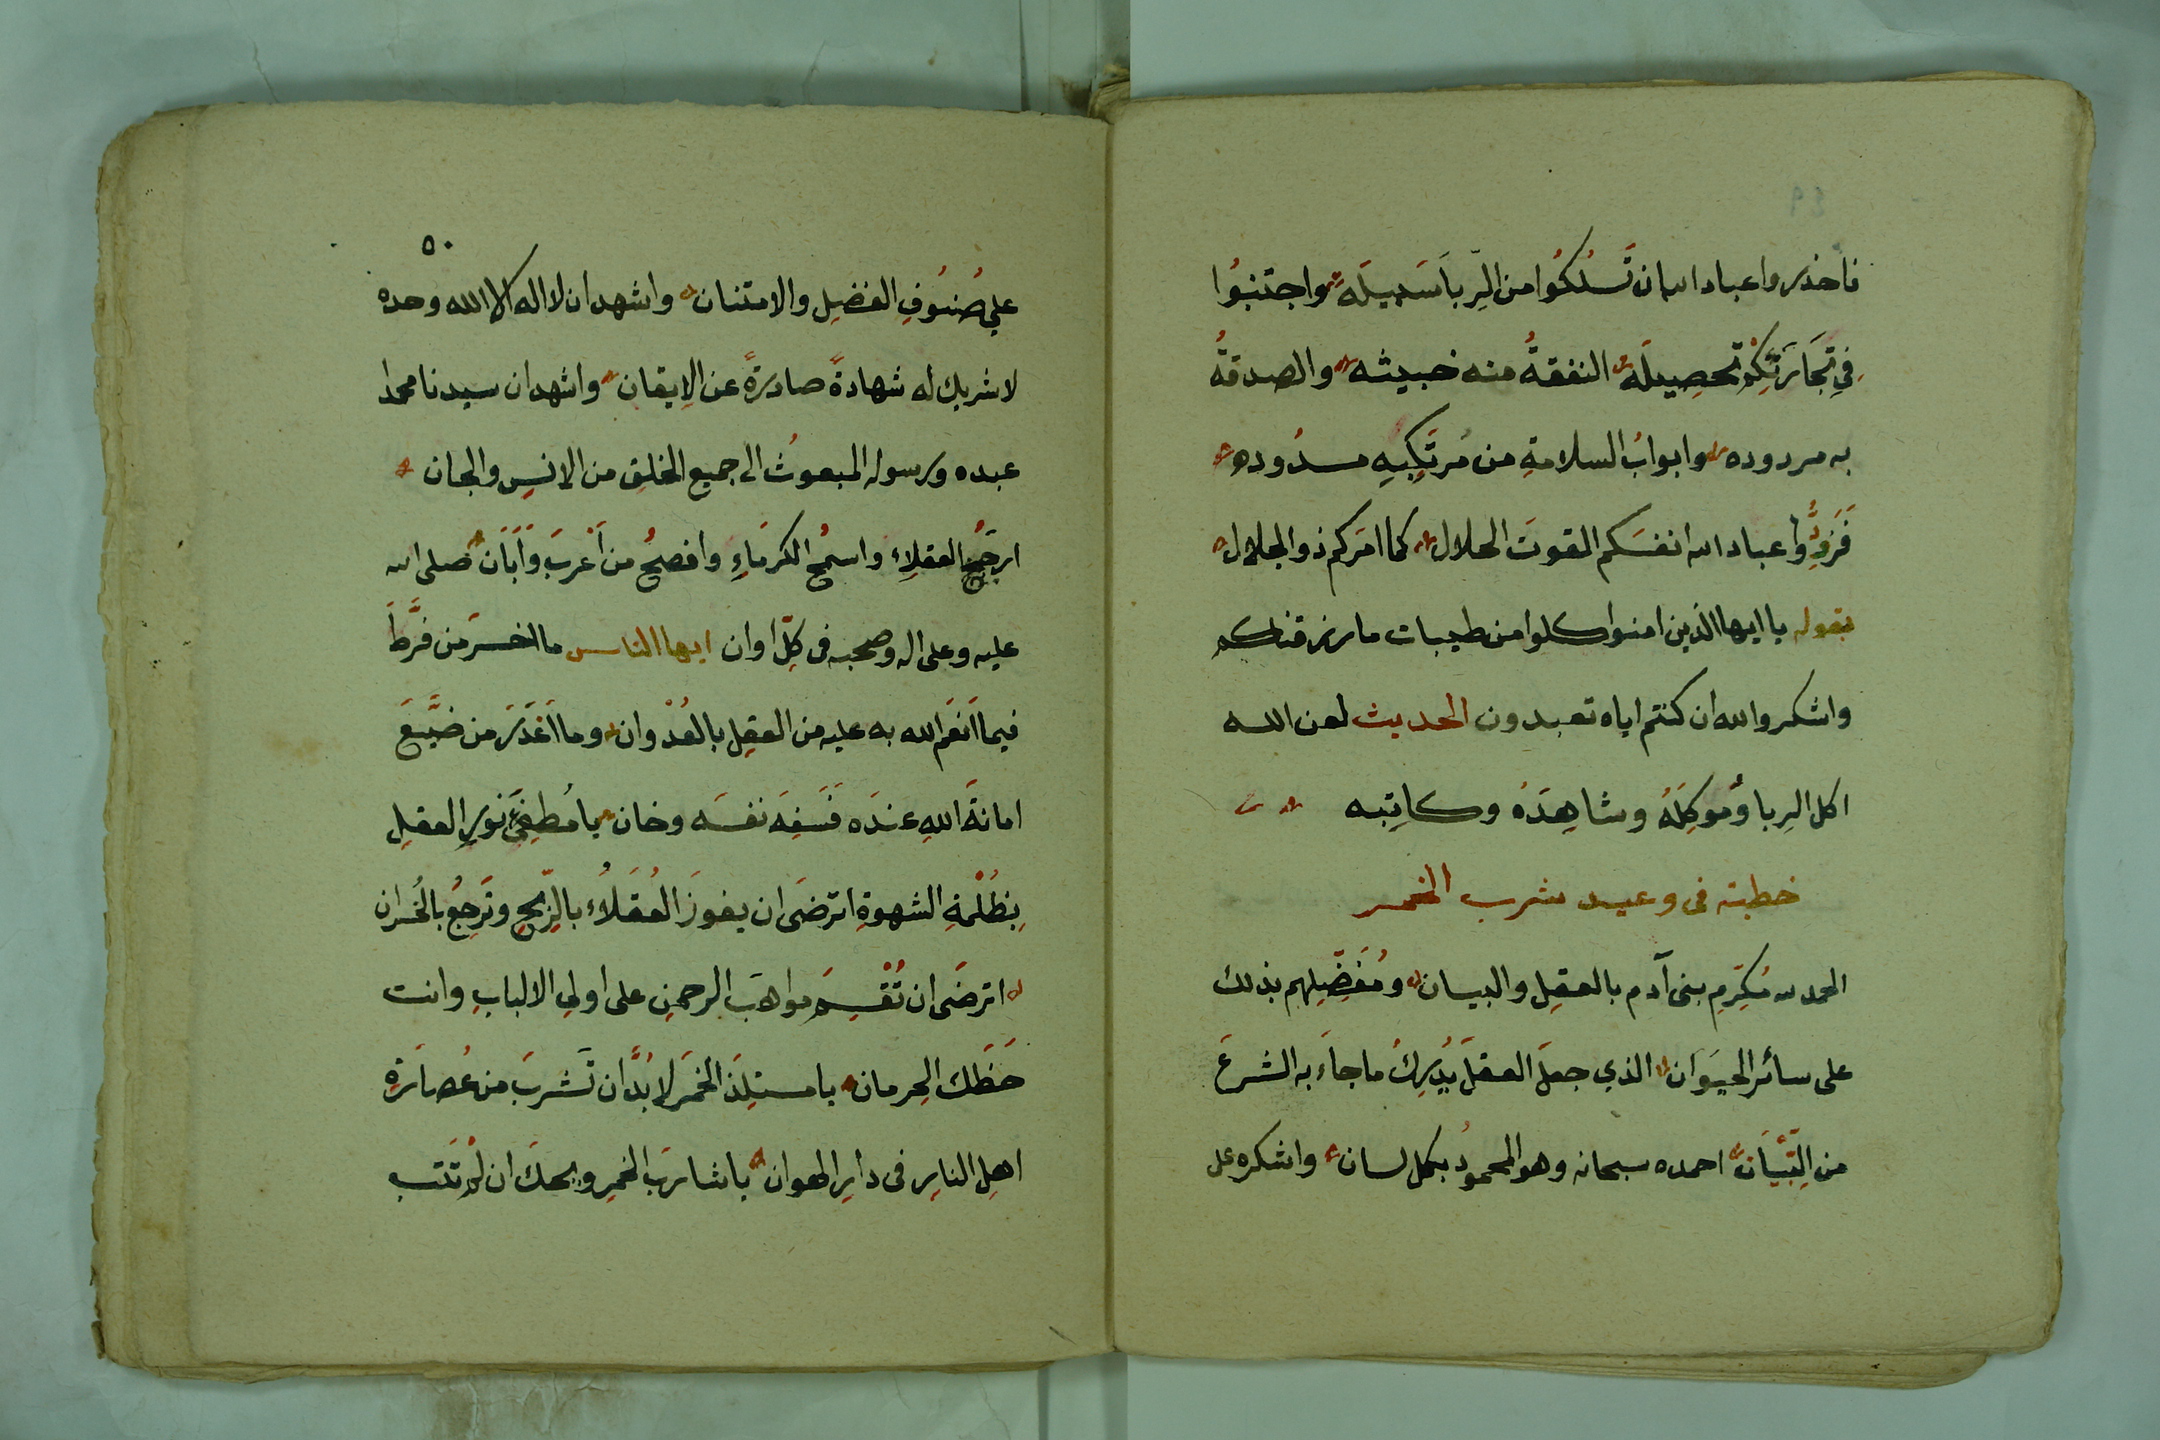 ٤٩
فاحذروا عباد الله ان تَسلُكُوا من الرِّبا سَبيلَه واجتنبُوا
فِي تِجَارَتِكُم تحصِيلَه النفقةُ منه خبيثه والصدقةُ
به مردوده وابوابُ السلامةِ من مُرتَكِبِهِ مسدُوده
فَزَوِّدُوا عباد الله انفسَكم القوتَ الحلال كما امَركم ذو الجلال
بقوله يا ايها الذين امنوا كلوا من طيبات ما رزقناكم
واشكروا لله ان كنتم اياه تعبدون الحديث لعن الله
اكل الرِبا وَمُوكِلَهُ وشاهِدَهُ وكاتِبه
خطبة في وعيد شرب الخمر
الحمد لله مُكرِّمِ بنى آدم بالعقلِ والبيان ومُفَضِّلِهم بذلك
على سائر الحيَوَان الذي جعلَ العقلَ يُدرِكُ ما جاءَ به الشرعَ
من التِّبْيَان احمده سبحانه وهو المحمودُ بكل لسان واشكره على
٥٠
علي صُنُوفِ الفضلِ والامتنان واشهد ان لا اله الا الله وحده
لا شريك له شهادةً صادرةً عن الايقان واشهد ان سيدنا محمدا
عبده ورسوله المبعوثُ الى جميع الخلق من الانسِ والجان
ارجَحُ العقلاءِ واسمحُ الكرمَاءِ وافصحُ من اَعْربَ وَاَبَان صلى الله
عليه وعلى اله وصحبه في كلِّ اوان ايها الناس ما اخسرَ من فرَّطَ
فيما اَنعَم الله به عليه من العقلِ بالعُدْوان وما اَغدَرَ من ضيَّعَ
امانةَ اللهِ عندَه فَسَفِهَ نفسَه وخان يا مُطفِئَ نورِ العقلِ
بِظُلْمةِ الشهوةِ اترضَى ان يفوزَ العُقَلاُء بالرِّبحِ وتَرجِعُ بالخُسران
اترضَى ان تُقْسَمَ مواهبَ الرحمنِ على اولي الالبابِ وانت
حَظَكَ الحِرمان يا مستلِذَ الخمَر لا بُدَّ ان تَشربَ من عُصارَةِ
اهلِ النارِ في دارِ الهوان يا شاربَ الخمرِ ويحكَ ان لم تتب